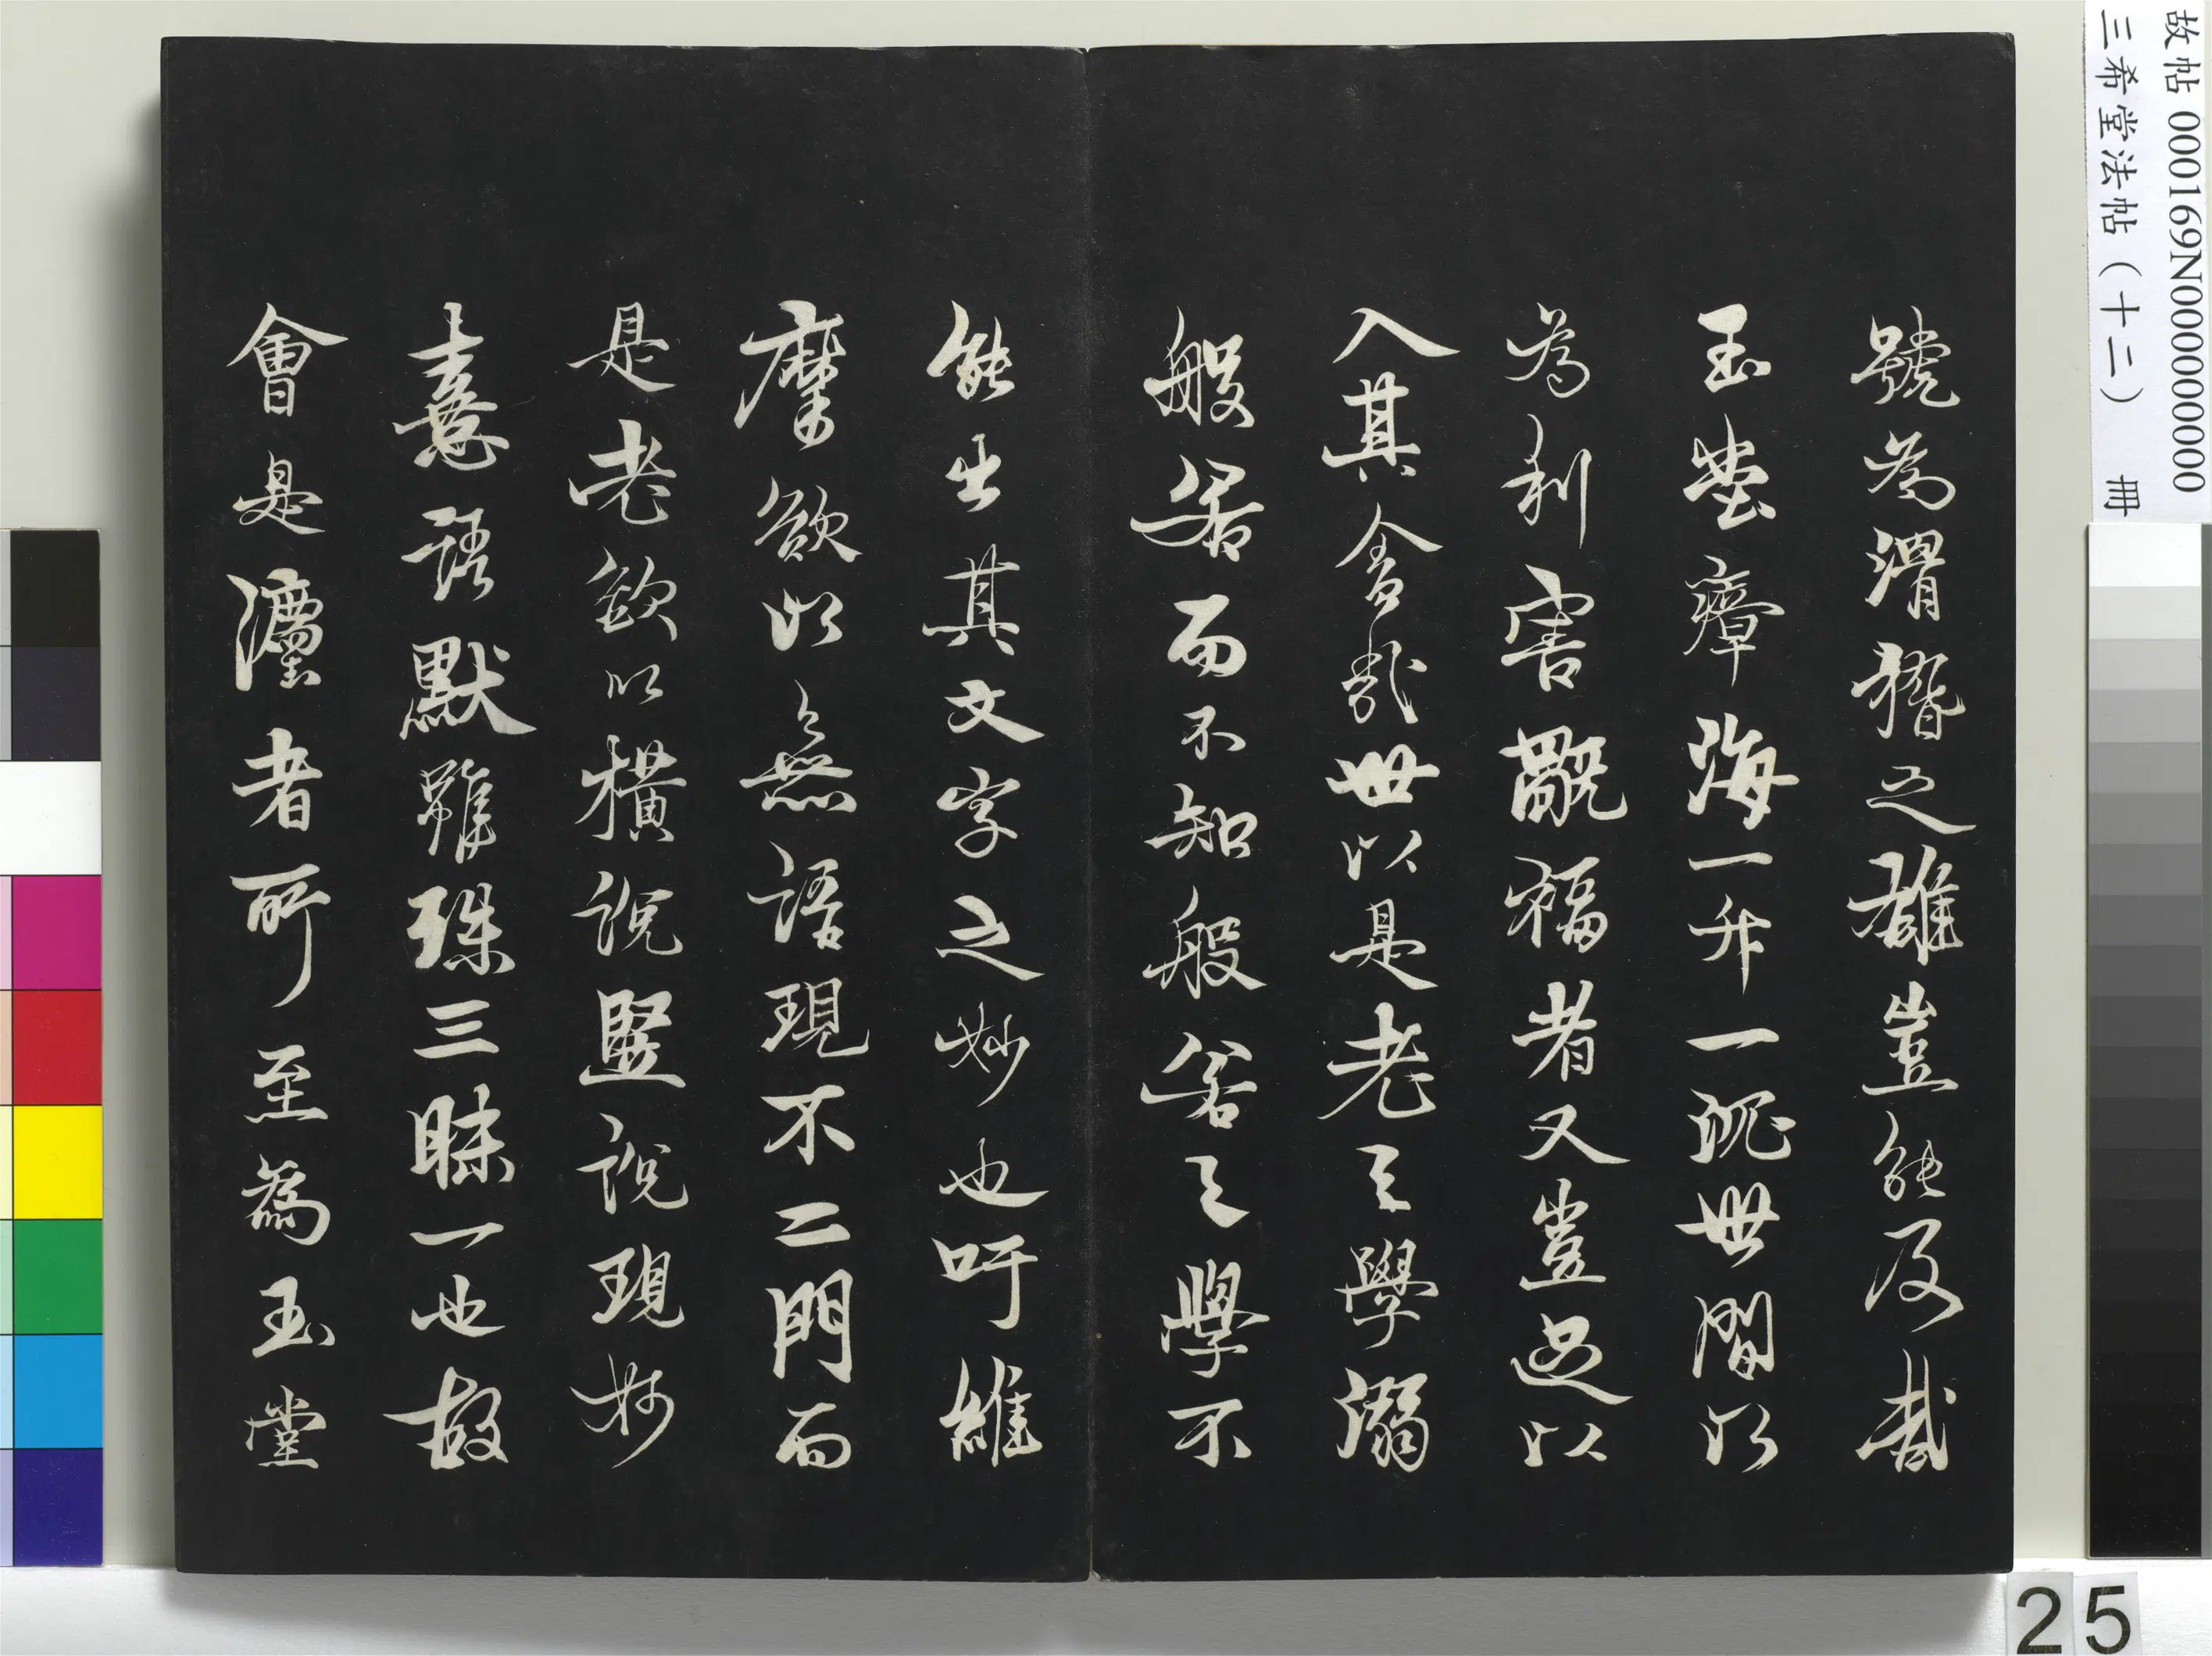 故帖 000169N000000000
三希堂法帖（十二） 冊
號為滑稽之雄豈能及哉
玉堂瘴海一升一沉世間以
為利害旤福者又豈足以
入其舍哉世以是老之學溺
般若而不知般若之學不
能出其文字之妙也吁維
摩欲以無語現不二門而
是老欲以橫說竪說現妙
憙語默雖殊三昧一也故
會是灋者所至為玉堂
25